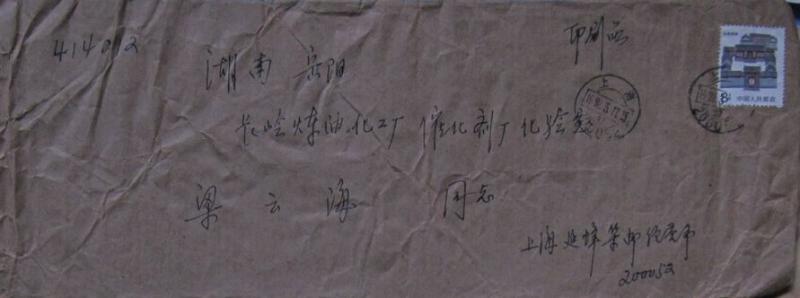 414012
印刷品
湖南 岳阳
长岭炼油化工厂 催化剂厂化验室
梁云海 同志
上海延蜂集邮经营部
200052
上海
8分 中国人民邮政